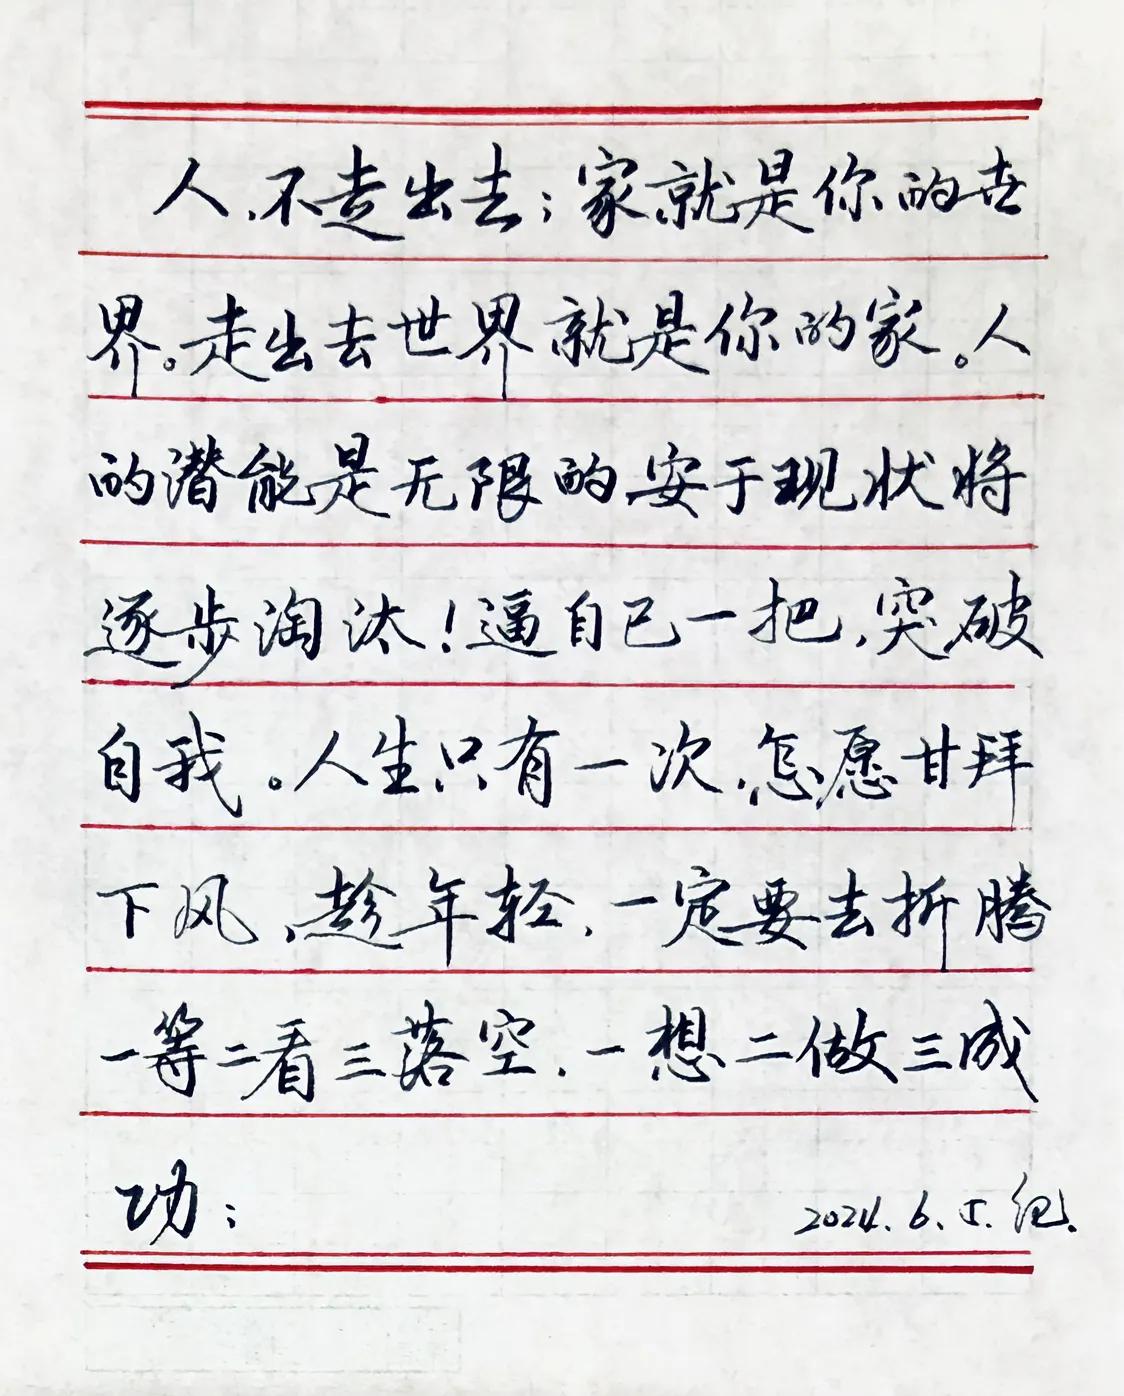 人,不走出去;家就是你的世
界。走出去世界就是你的家。人
的潜能是无限的,安于现状将
逐步淘汰!逼自己一把,突破
自我。人生只有一次,怎愿甘拜
下风,趁年轻,一定要去折腾
一等二看三落空,一想二做三成
功;
2024.6.5.